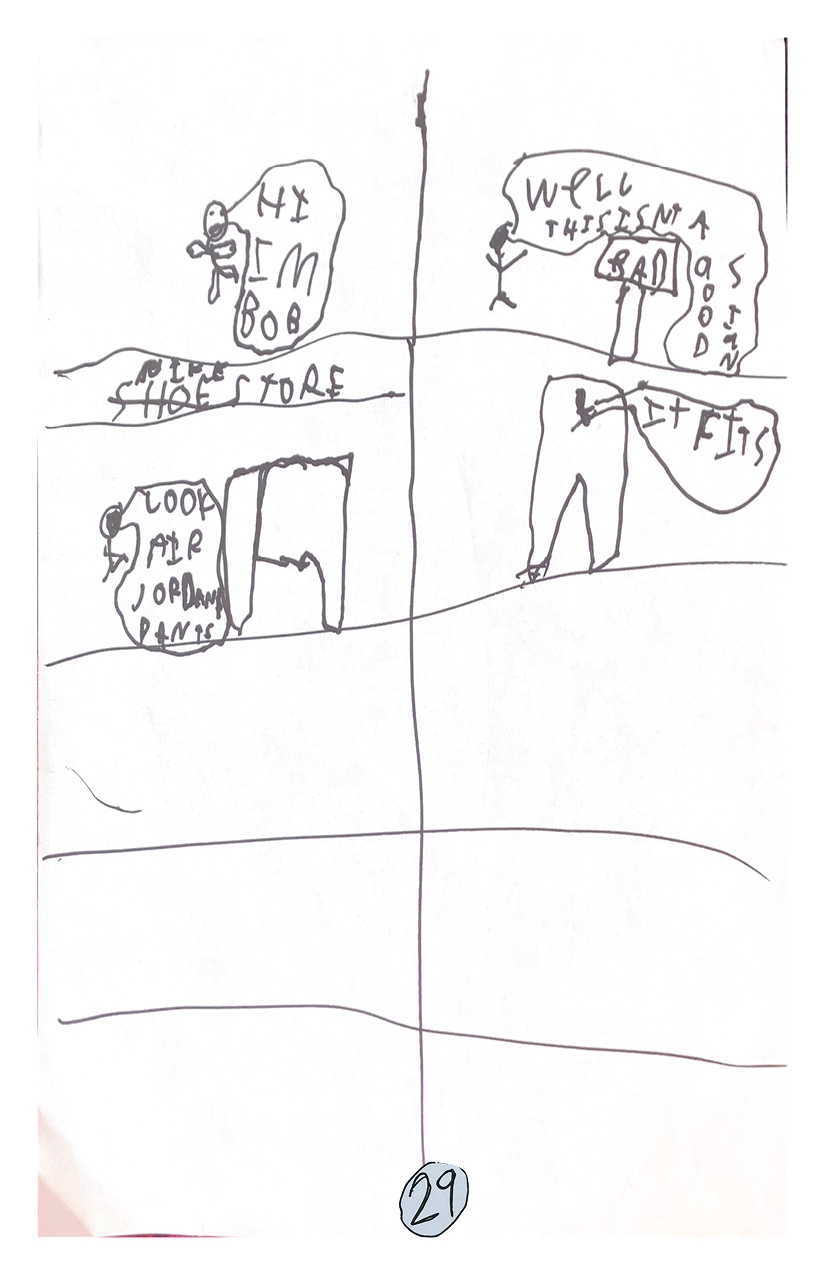 HI
IM
BOB
WELL
THIS ISNT A
GOOD
SIGN
BAD
NIKE
SHOE STORE
LOOK
AIR
JORDAN
PANTS
It FITS
29